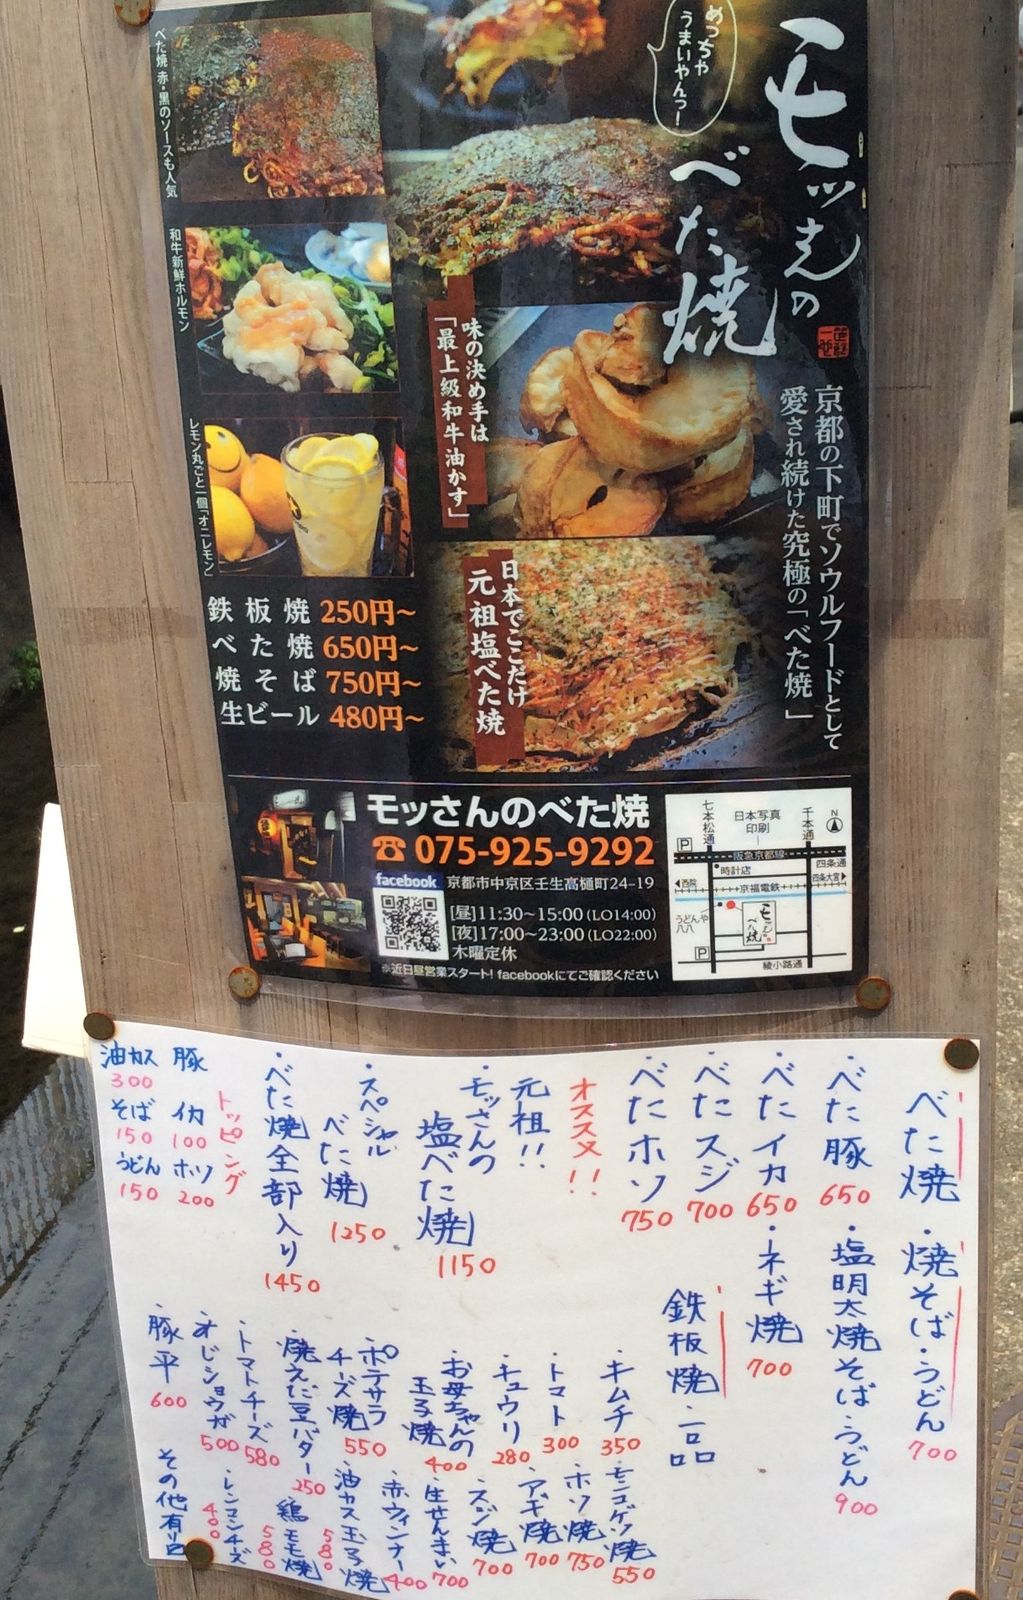 めっちゃ
うまいやんっー
モッさんの
べた焼
京都の下町でソウルフードとして
愛され続けた究極の「べた焼」
べた焼 赤・黒のソースも人気
和牛新鮮ホルモン
レモン丸ごと一個「オニレモン」
味の決め手は
「最上級和牛油かす」
日本でここだけ
元祖塩べた焼
鉄板焼 250円~
べた焼 650円~
焼そば 750円~
生ビール 480円~
モッさんのべた焼
☎075-925-9292
facebook
京都市中京区壬生高樋町24-19
[昼]11:30~15:00(LO14:00)
[夜]17:00~23:00(LO22:00)
木曜定休
※近日昼営業スタート! facebookにてご確認ください
七本松通
日本写真
印刷
千本通
N
P
阪急京都線
時計店
四条通
西院
京福電鉄
四条大宮
うどんや
八八
モッさんの
べた焼
P
綾小路通
べた焼・焼そば・うどん
700
・べた豚 650
・塩明太焼そば・うどん 900
・べたイカ 650
・ネギ焼 700
・べたスジ 700
・べたホソ 750
オススメ!!
元祖!!
・モッさんの
塩べた焼 1150
・スペシャル
べた焼 1250
・べた焼全部入り 1450
トッピング
豚
イカ 100
ホソ 200
油カス 300
そば 150
うどん 150
鉄板焼・一品
・キムチ 350
・トマト 300
・キュウリ 280
・お母ちゃんの
玉子焼 400
・ポテサラ
チーズ焼 550
・焼えだ豆バター 250
・トマトチーズ 580
・オジショウガ 500
・豚平 600
・ホソ焼 750
・アカギ焼 700
・スジ焼 700
・生せんまい 700
・赤ウィンナー 400
・油カス玉子焼 580
・鶏モモ焼 580
・レンコンチーズ 400
その他有り